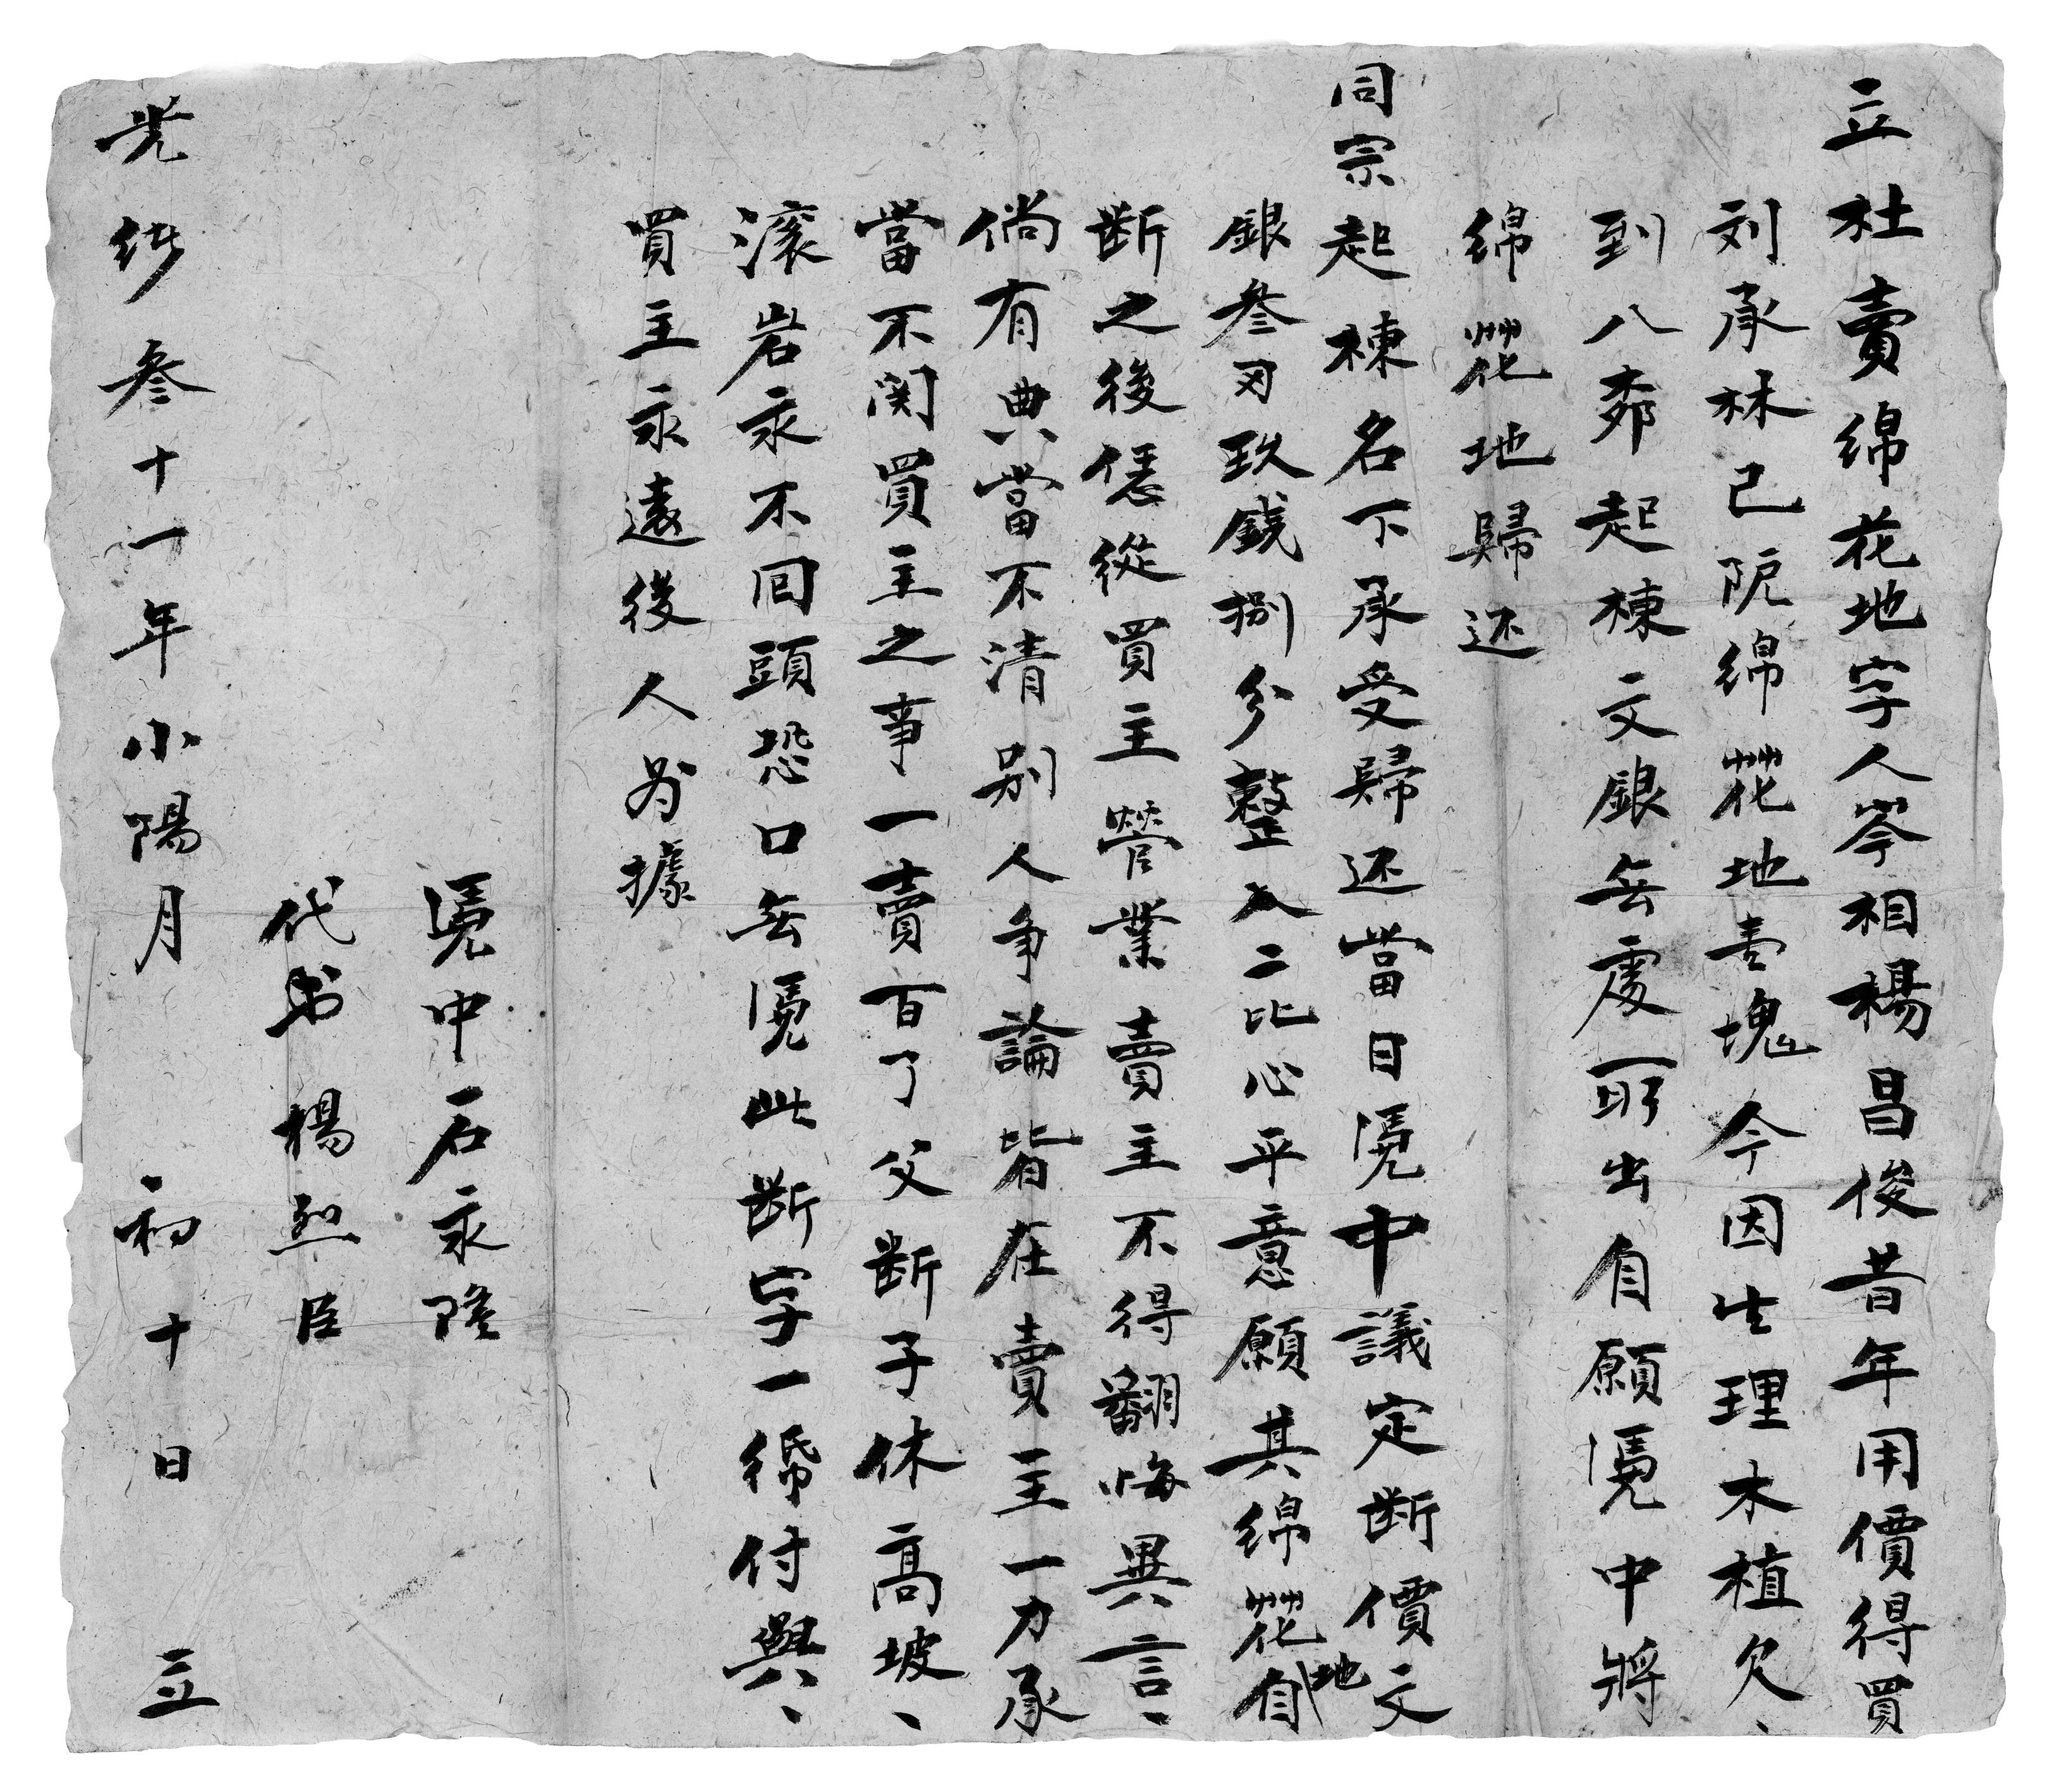 立杜賣綿花地字人岑相楊昌俊昔年用價得買
刘承林已阮綿花地壹塊今因生理木植欠
到八寨起棟文銀無處所出自願凴中將
綿花地歸还
同宗起棟名下承受歸还當日凴中議定断價文
銀叁刄玖錢捌分整入二比心平意願其綿花地自
断之後恁從買主營業賣主不得翻悔異言
倘有典當不清别人争論皆在賣主一力承
當不関買主之事一賣百了父断子休高坡
滚岩永不囬頭恐口無凴此断字一紙付與
買主永遠後人为據
凴中石永隆
代书楊烈臣
光绪叁十一年小陽月初十日立